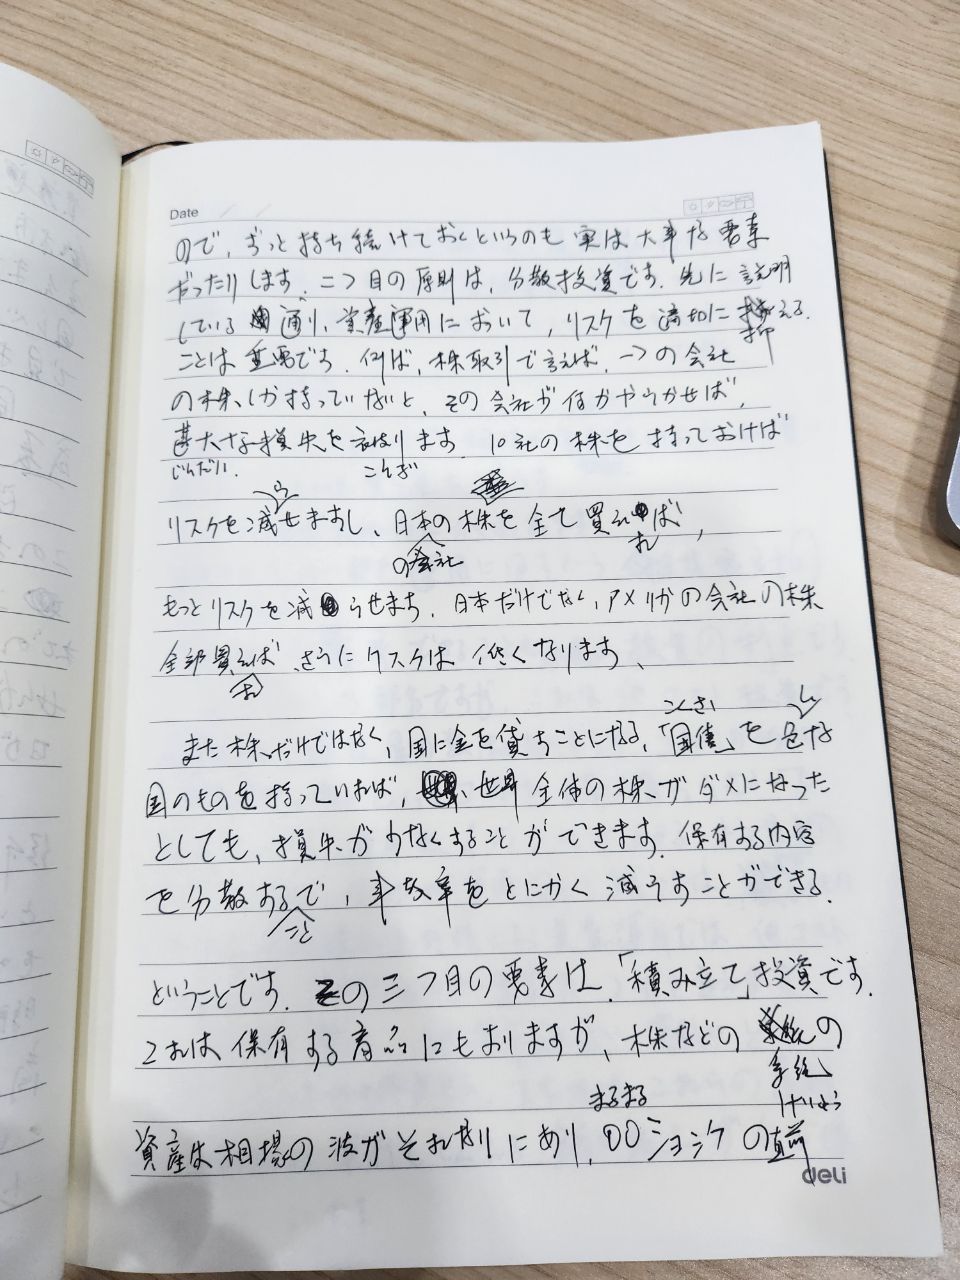 Date
ので、ずっと持ち続けておくというのも実は大事な要素
だったりします。二つ目の原則は、分散投資です。先に説明
している通り、資産運用において、リスクを適切に抑える
ことは重要です。例ば、株取引で言えば、一つの会社
の株しか持っていないと、その会社が何かやらかせば、
甚大な損失を被ります。10社の株を持っておけば
じんだい こうむ
リスクを減らせますし、日本の会社の株を全て買えれば、
もっとリスクを減らせます。日本だけでなく、アメリカの会社の株
全部買えれば、さらにリスクは低くなります、
こくさい
また株だけではなく、国に金を貸すことになる、「国債」を色んな
国のものを持っていれば、世界全体の株がダメになった
としても、損失が少なくすることができます。保有する内容
を分散することで、事故率をとにかく減らすことができる
ということです。の三つ目の要素は、「積み立て」投資です。
これは保有する商品にもよりますが、株などの系統の
まるまる けいとう
資産は相場の波がそれなりにあり、〇〇ショックの直前
deli